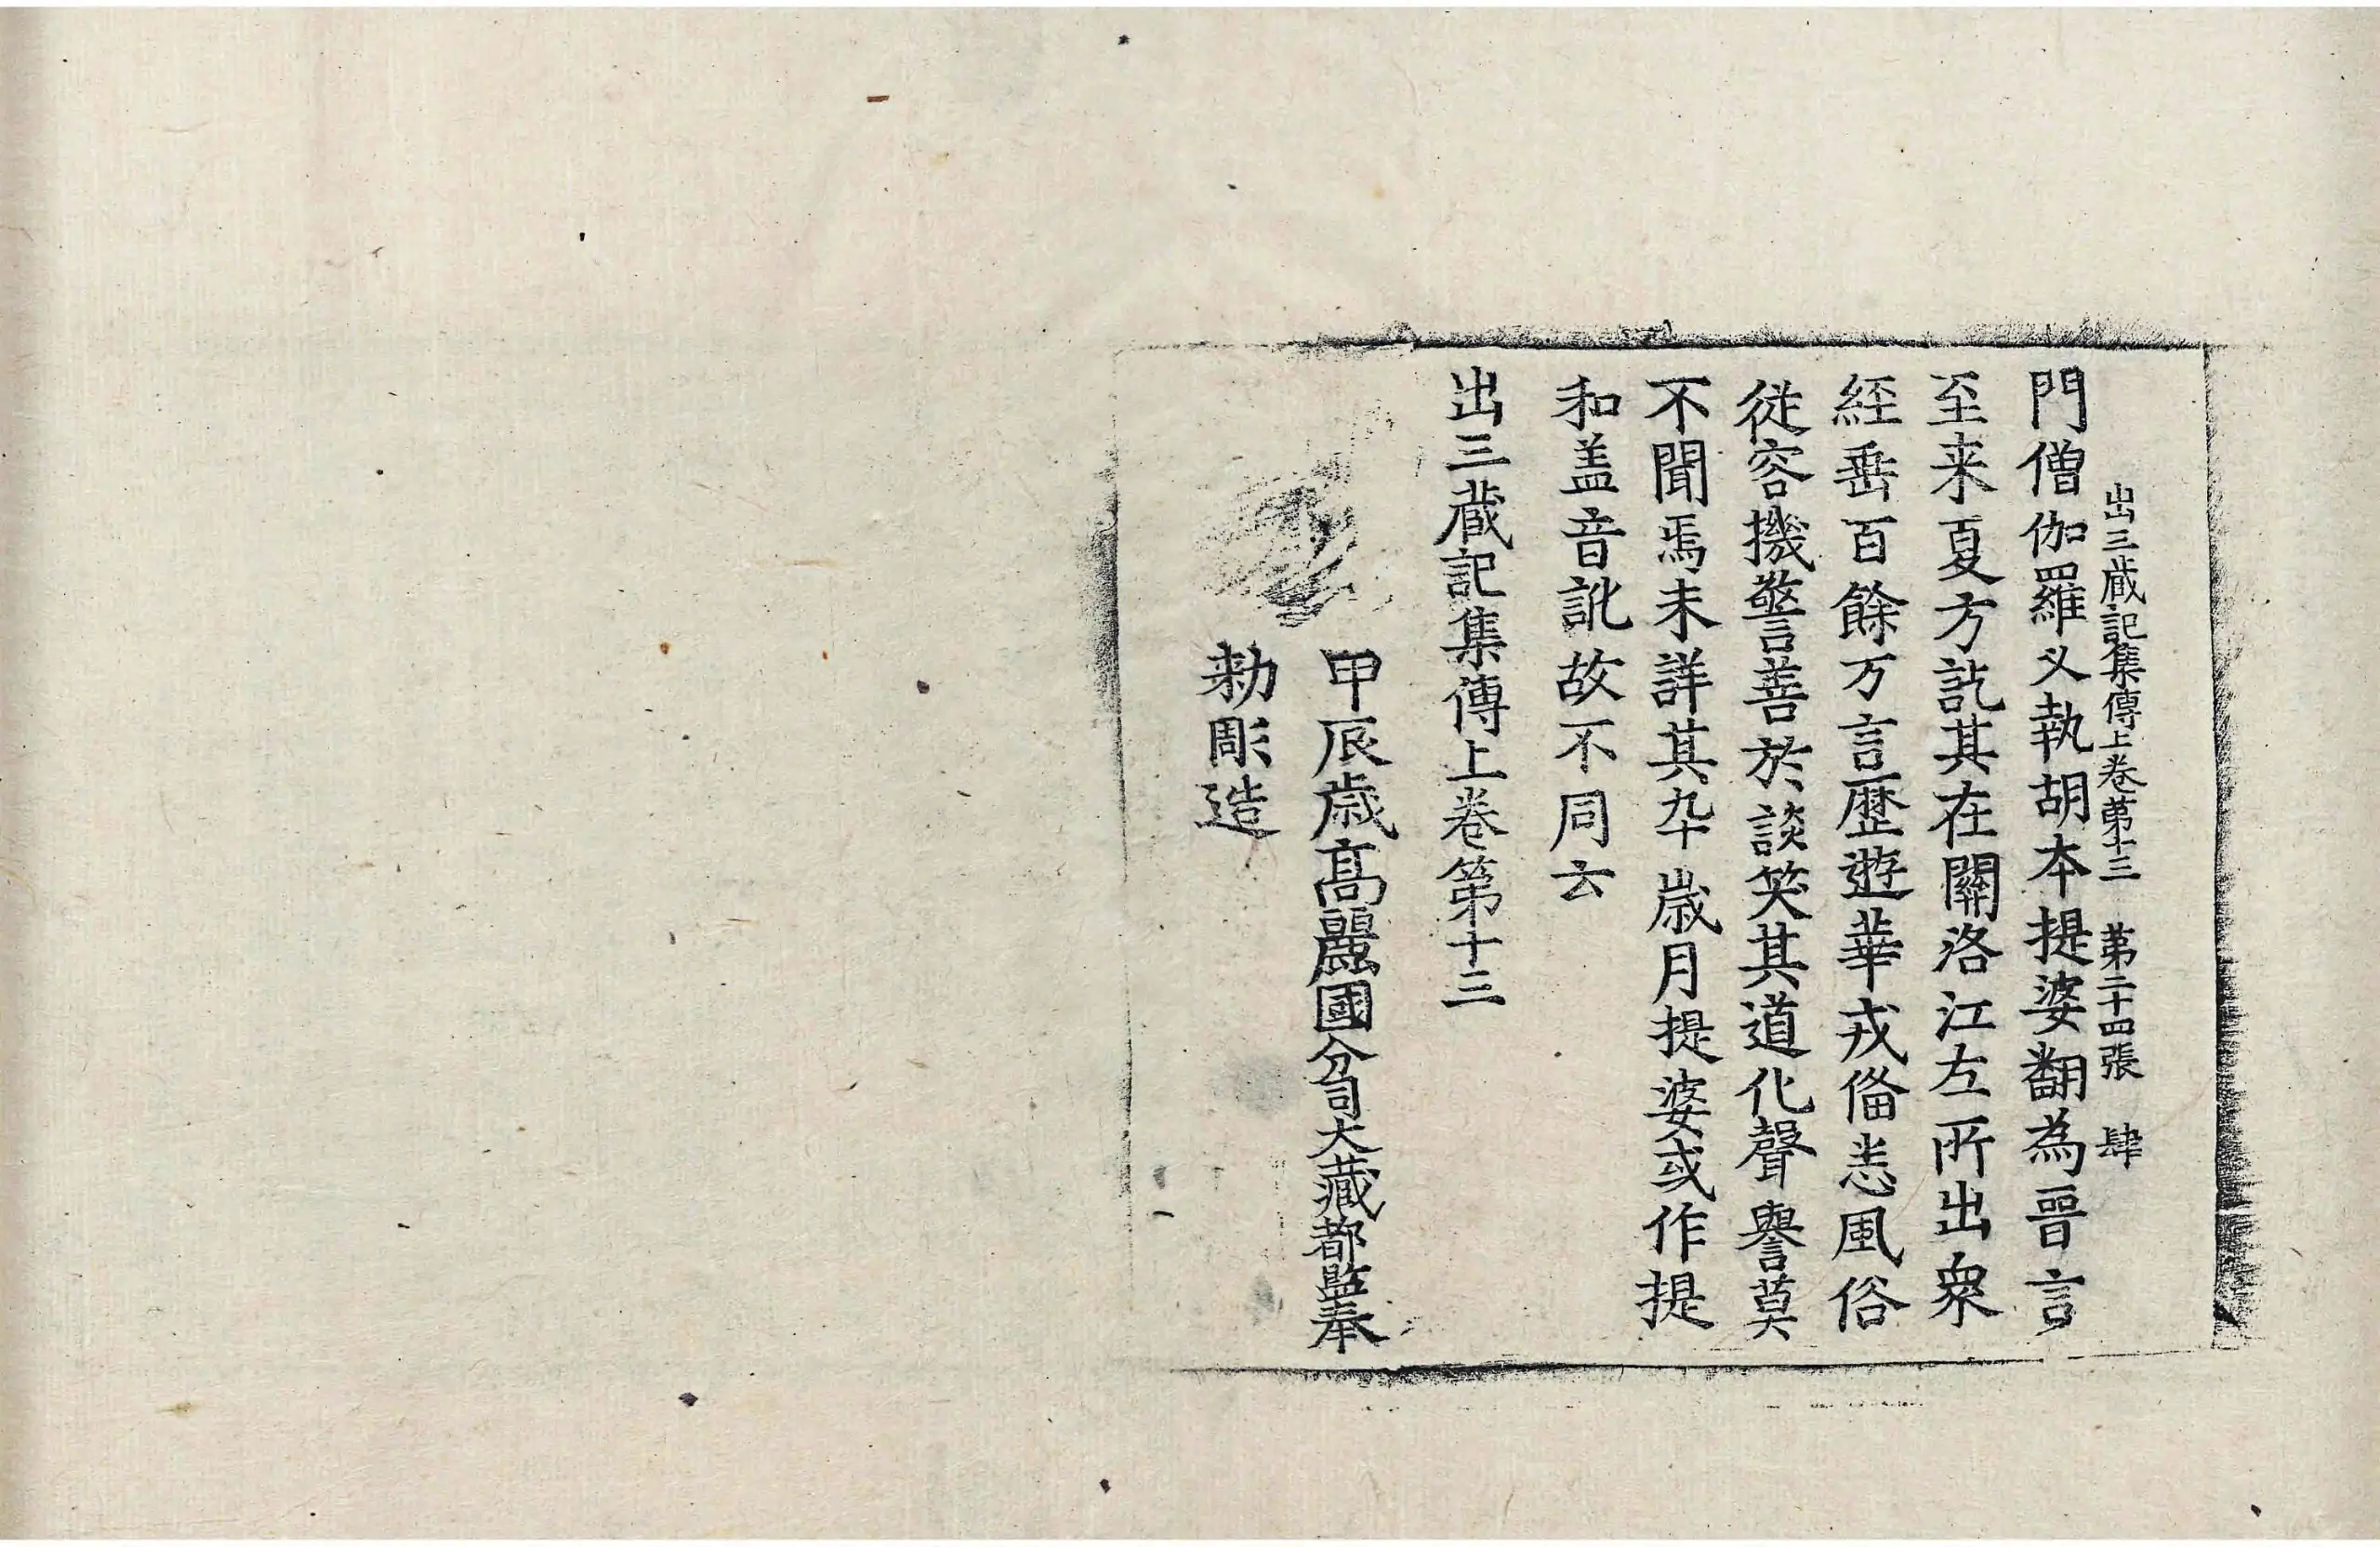 出三蔵記集傳上卷苐十三　苐二十四張　肆
門僧伽羅义執胡本提婆翻為晉言
至来夏方訖其在關洛江左所出衆
經垂百餘万言歷遊華戎俻悉風俗
従容機警善於談笑其道化聲譽莫
不聞焉未詳其卒歳月提婆或作提
和盖音訛故不同云
出三蔵記集傳上卷第十三
甲辰歳髙麗國分司大藏都監奉
勑彫造